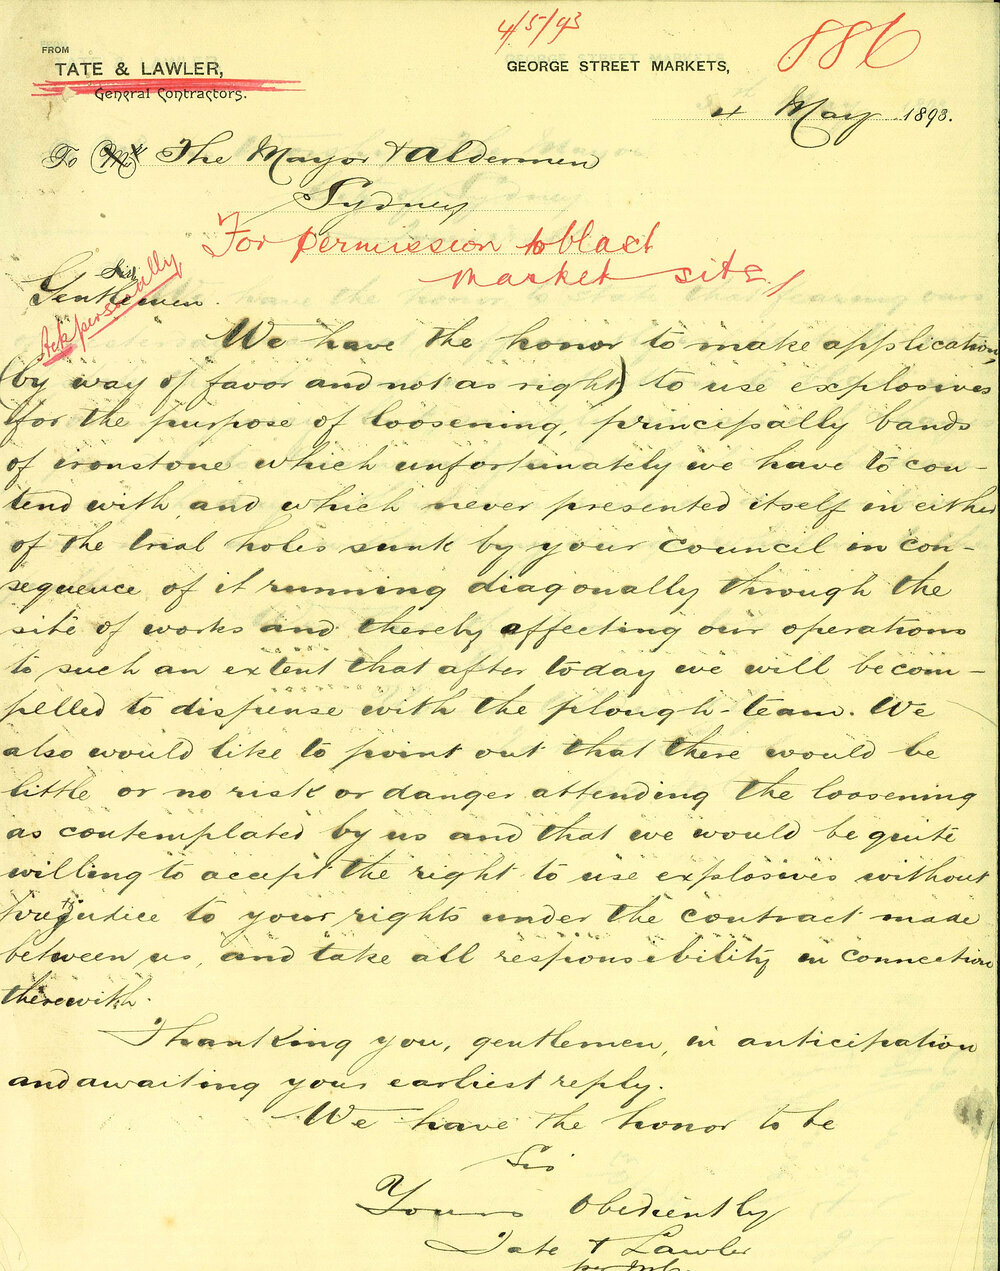 4/5/93
886
FROM
TATE & LAWLER,
General Contractors.
GEORGE STREET MARKETS,
4 May 1893.
To The Mayor & Aldermen
Sydney
For permission to blast
market site
Ack personally
Gentlemen.
We have the honor to make application,
(by way of favor and not as right) to use explosives
for the purpose of loosening, principally bands
of ironstone which unfortunately we have to con-
tend with, and which never presented itself in either
of the trial holes sunk by your council in con-
sequence of it running diagonally through the
site of works and thereby affecting our operations
to such an extent that after today we will be com-
pelled to dispense with the plough-team. We
also would like to point out that there would be
little or no risk or danger attending the loosening
as contemplated by us and that we would be quite
willing to accept the right to use explosives without
prejudice to your rights under the contract made
between us, and take all responsibility in connection
therewith.
Thanking you, gentlemen, in anticipation
and awaiting your earliest reply.
We have the honor to be
Sir
Yours Obediently
Tate & Lawler
per